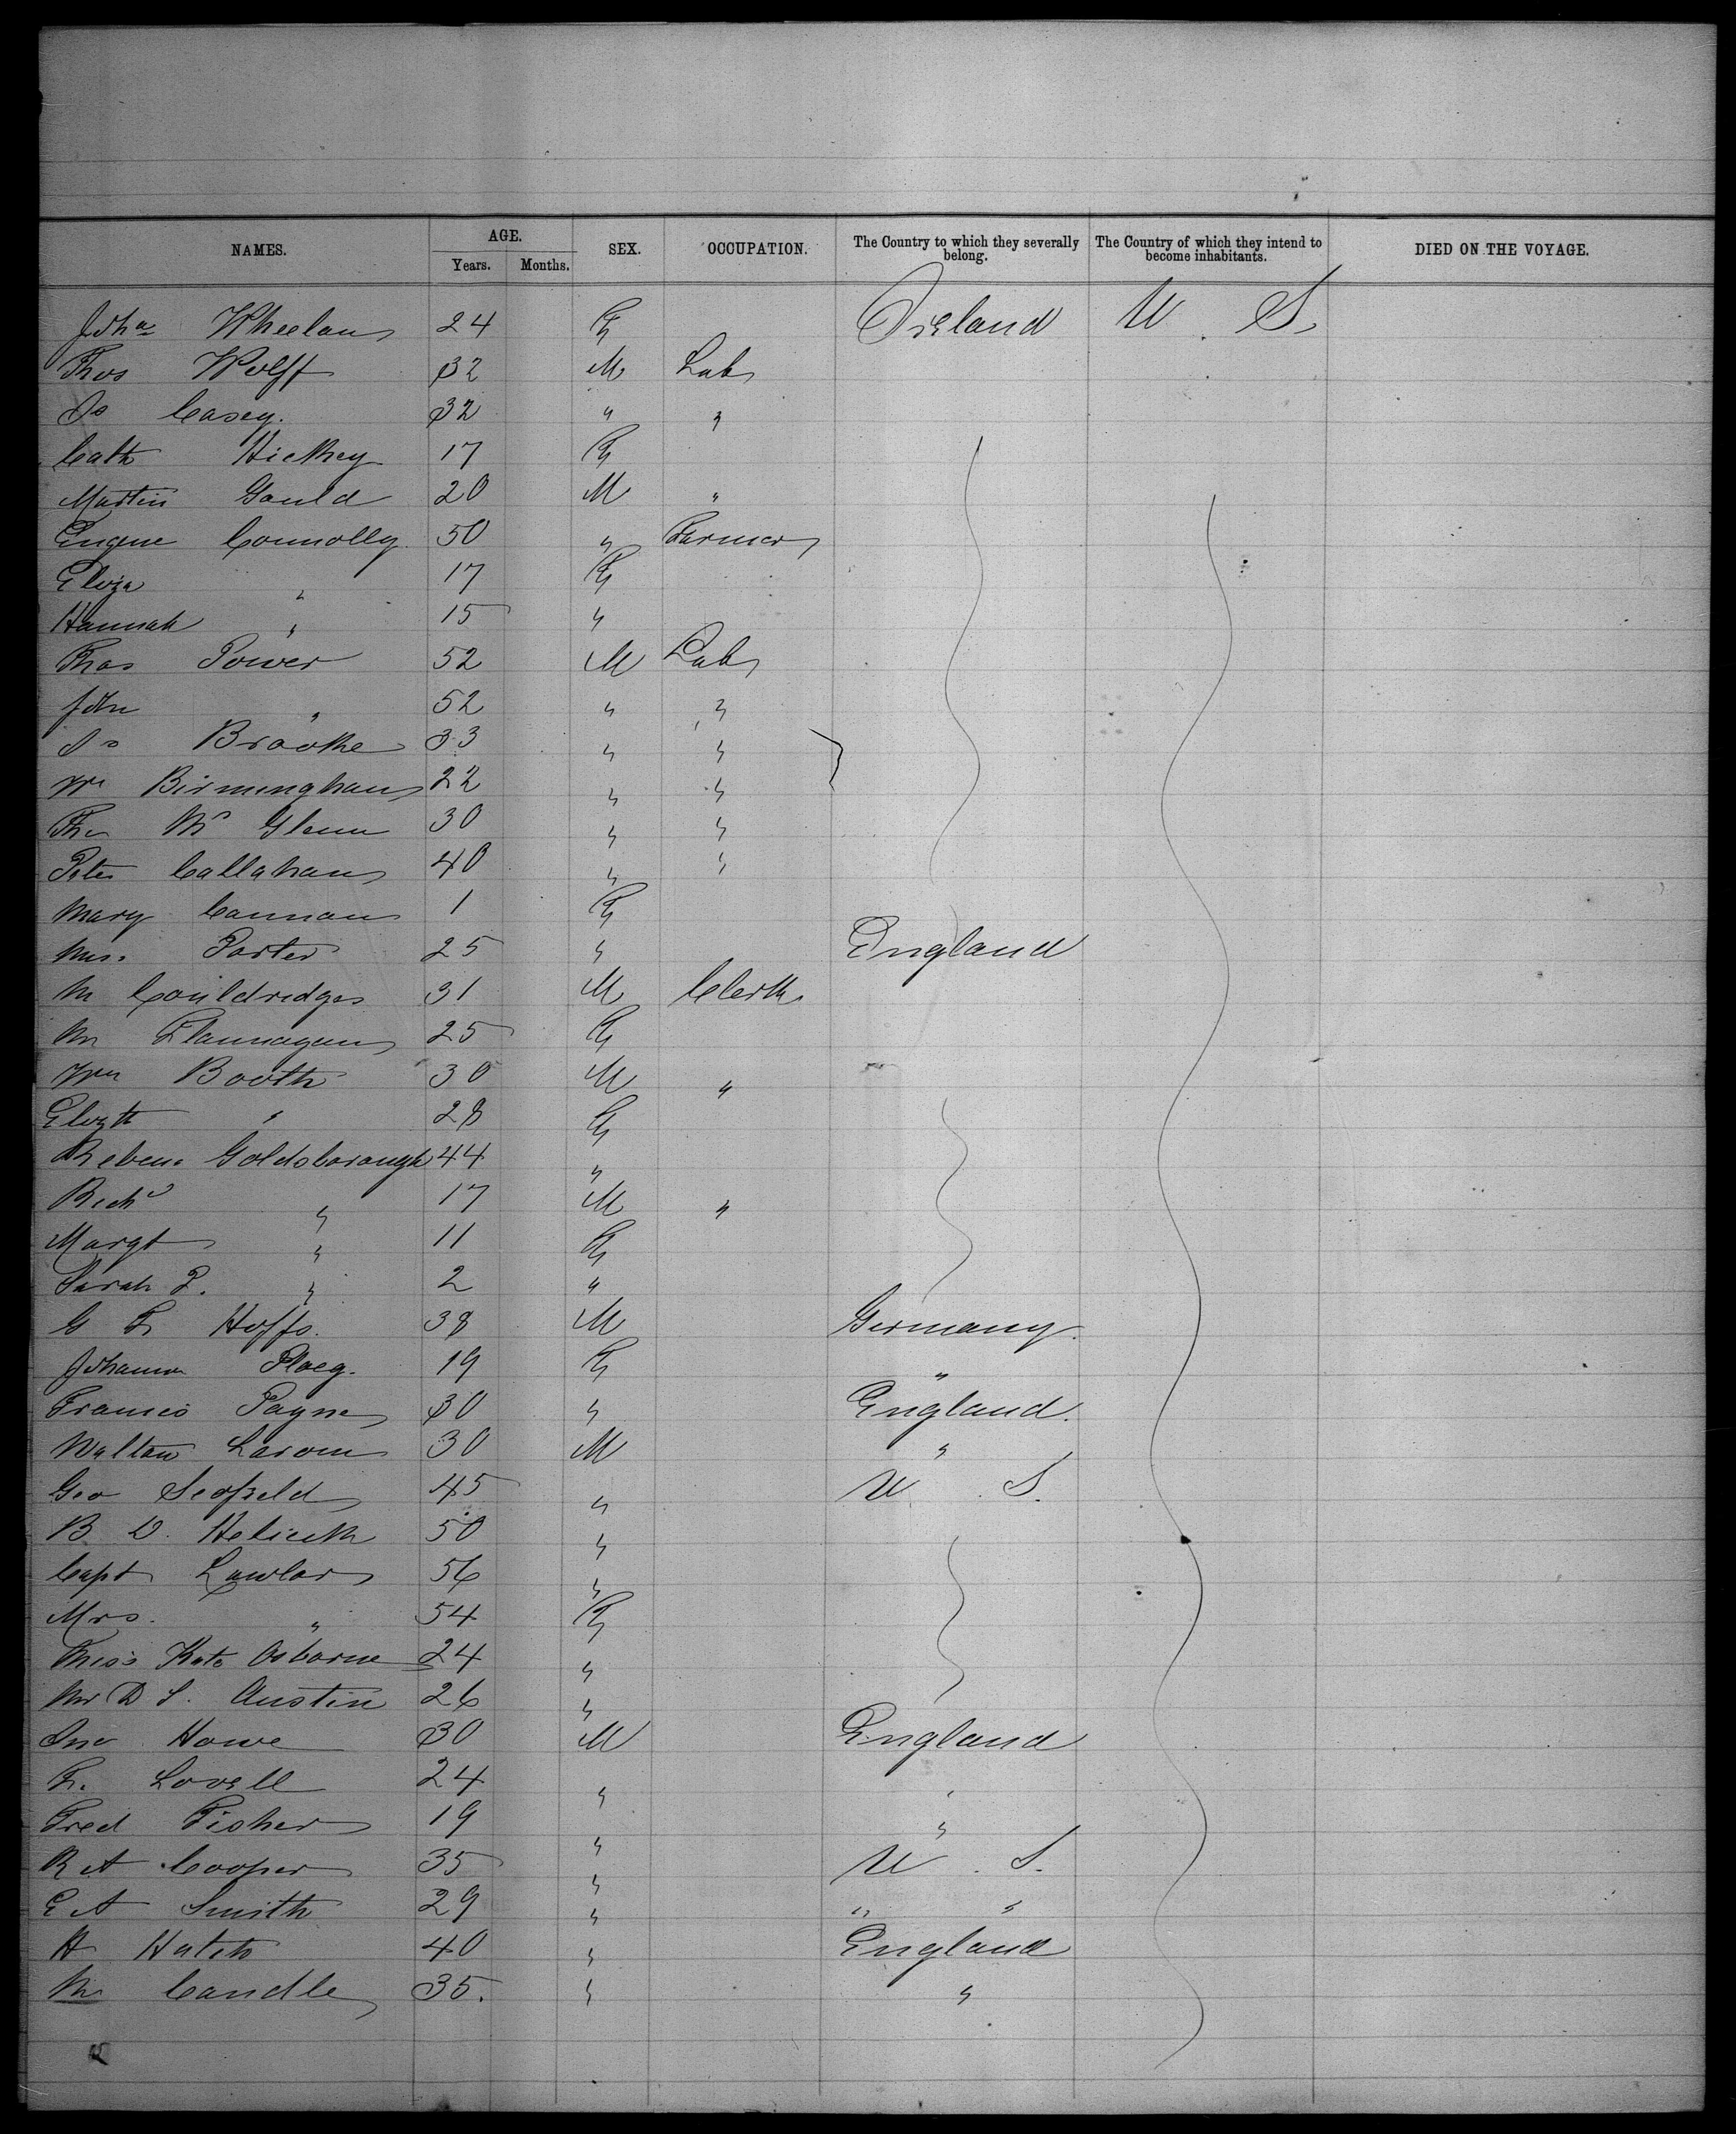 NAMES. AGE. Years. Months. SEX. OCCUPATION. The Country to which they severally belong. The Country of which they intend to become inhabitants. DIED ON THE VOYAGE.
Joha Wheelan 24 F Ireland U S.
Thos Wolff 32 M Lab
Do Casey. 32 " "
Cath Hickey 17 F
Martin Gauld 20 M "
Eugene Connolly 50 " Farmer
Eliza " 17 F
Hannah " 15 "
Thos Power 52 M Lab
John " 52 " "
Do Brooke 33 " "
Wm Birmingham 22 " "
Mc Glenn 30 " "
Peter Callahan 40 " "
Mary Cannan 1 F
Mrs. Porter 25 " England
M Couldridges 31 M Clerk
M Flannagan 25 F
Wm Booth 30 M "
Elizth " 28 F
Rebeca Goldsborough 44 "
Richd " 17 M "
Margt " 11 F
Sarah P. " 2 "
G F Hoffs. 38 M Germany.
Johanna Ploeg. 19 F "
Francis Payne 30 " England.
Walton Larom 30 M "
Geo Scofield 45 " U S.
B D. 50 "
Capt Lawlor 56 "
Mrs. " 54 F
Miss Kate Osborne 24 "
D S. Austin 26 "
Jno Howe 30 M England
F. Lovell 24 " "
Fred Fisher 19 " "
R A Cooper 35 " U. S.
E A Smith 29 " " "
H Hatch 40 " England
Candle 35. " "